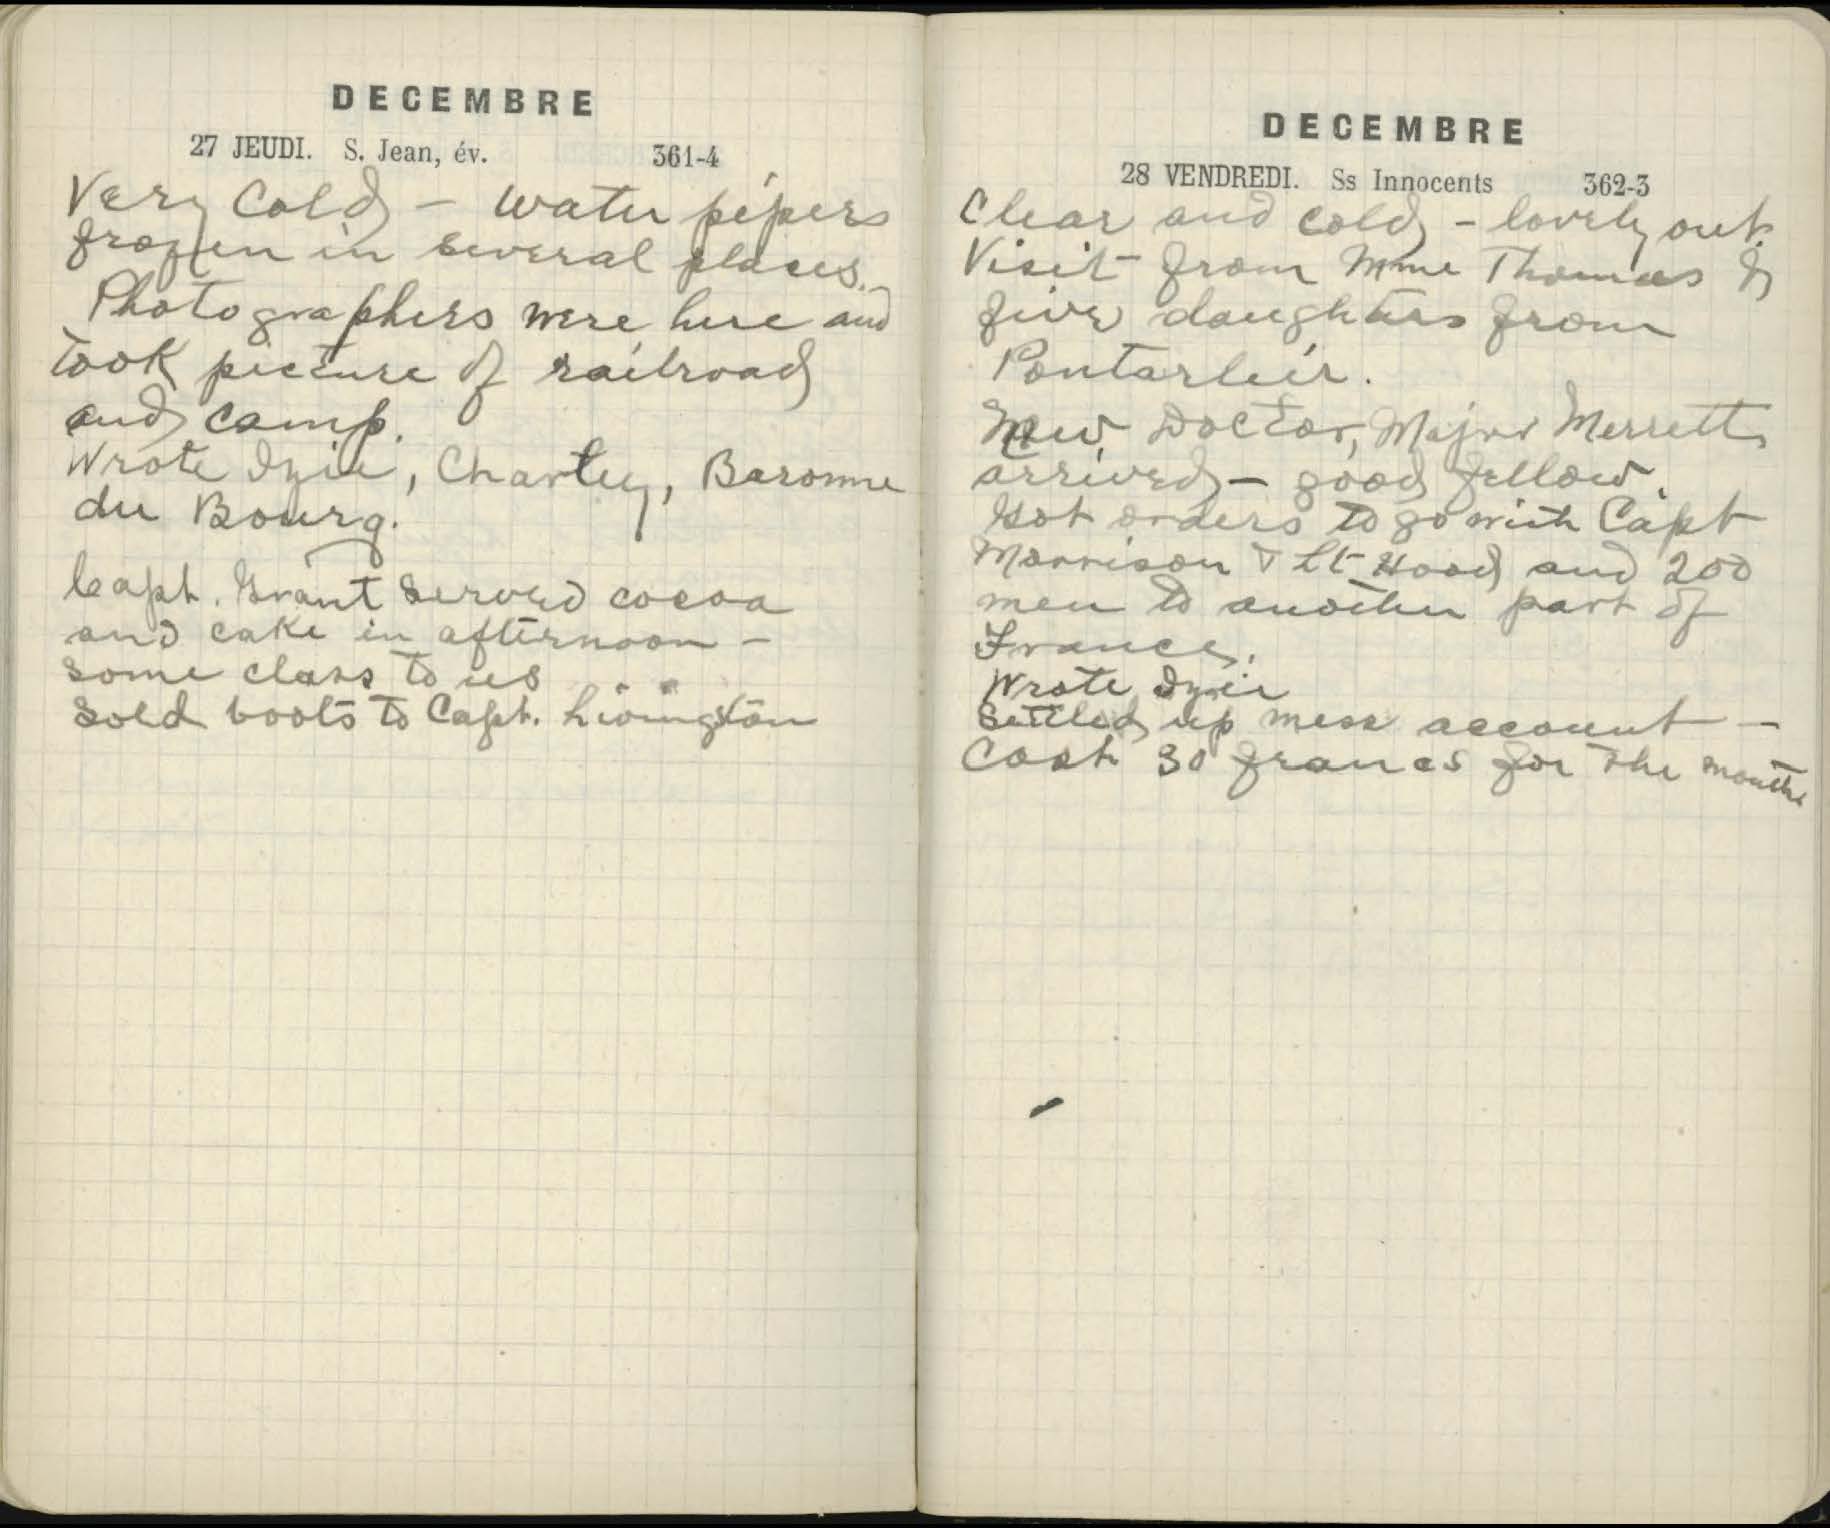 DECEMBRE
27 JEUDI. S. Jean, év. 361-4
Very Cold - water pipers
frozen in several places.
Photographers were here and
took picture of railroad
and camp.
Wrote Izie, Charley, Baronne
du Bourg.
Capt. Grant served cocoa
and cake in afternoon -
some class to us
Sold boots to Capt. Livingston
DECEMBRE
28 VENDREDI. Ss Innocents 362-3
Clear and cold - lovely out
Visit from Mme Thomas &
five daughters from
Pontarleir.
New Doctor, Major Merrett
arrived - good fellow.
Got orders to go with Capt
Morrison & Lt Hood and 200
men to another part of
France.
Wrote Izie
Settled up mess account -
Cost 30 francs for the month